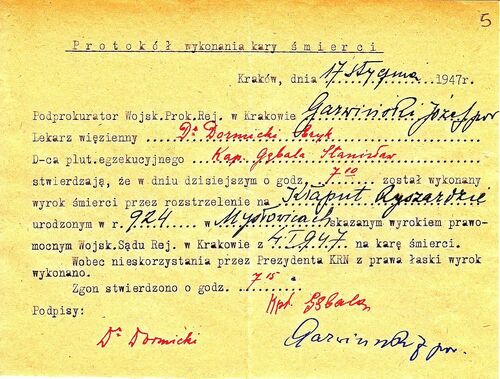 5
Protokół wykonania kary śmierci
Kraków, dnia 17 stycznia 1947r.
Podprokurator Wojsk.Prok.Rej. w Krakowie Garwiński Józef por
Lekarz więzienny Dr Dormicki Eryk
D-ca plut.egzekucyjnego Kap. Gębala Stanisław
stwierdzają, że w dniu dzisiejszym o godz. 7 10 został wykonany
wyrok śmierci przez rozstrzelenie na Kłaput Ryszardzie
urodzonym w r. 924 w Mysłowicach skazanym wyrokiem prawo-
mocnym Wojsk.Sądu Rej. w Krakowie z 4.I.947. na karę śmierci.
Wobec nieskorzystania przez Prezydenta KRN z prawa łaski wyrok
wykonano.
Zgon stwierdzono o godz. 7 15
Podpisy: Kpt. Gębala
Dr Dormicki Garwiński J por.